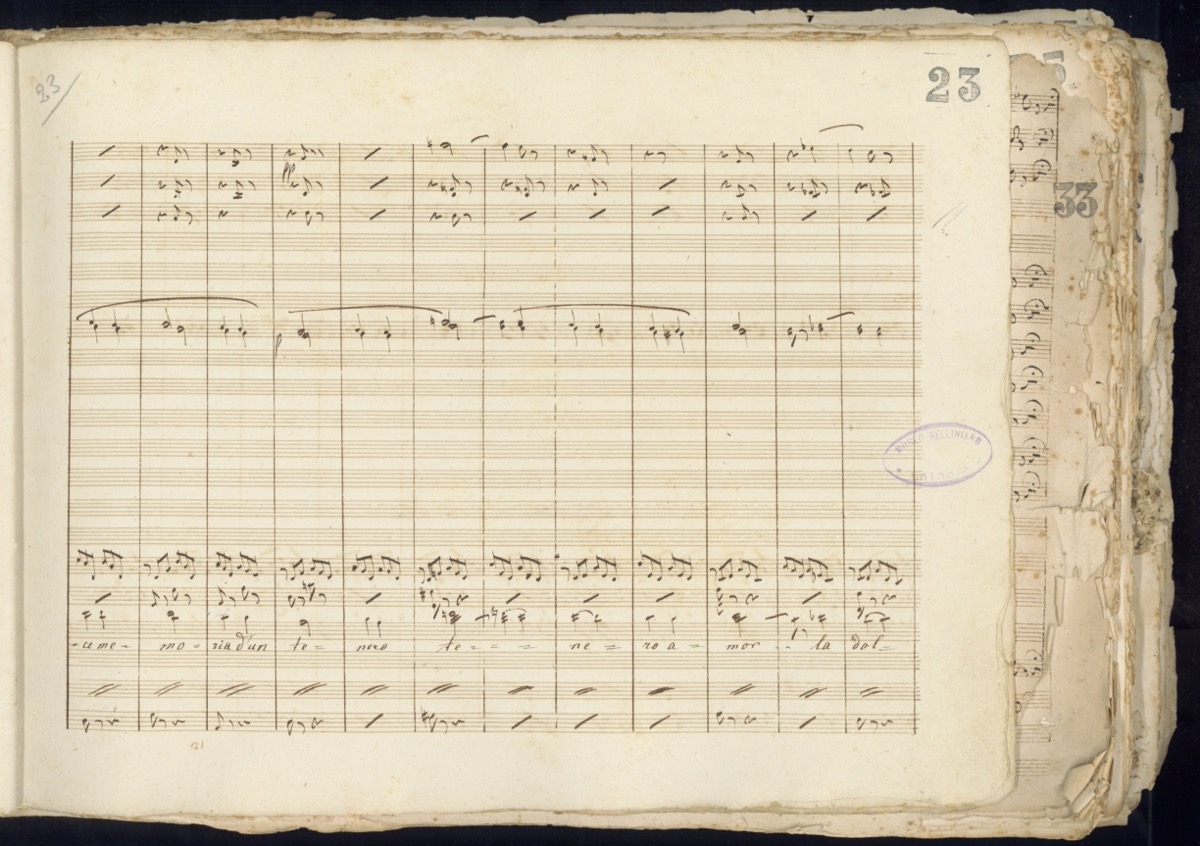 23
23
33
p
-ce me- mo- ria d'un te= nero te= - = ne= ro a= mor - la dol=
MUSEO BELLINIANO
21